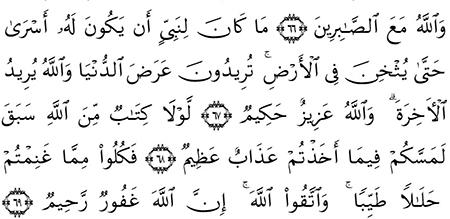 وَٱللَّهُ مَعَ ٱلصَّـٰبِرِينَ ﴿٦٦﴾ مَا كَانَ لِنَبِىٍّ أَن يَكُونَ لَهُۥٓ أَسْرَىٰ
حَتَّىٰ يُثْخِنَ فِى ٱلْأَرْضِ ۚ تُرِيدُونَ عَرَضَ ٱلدُّنْيَا وَٱللَّهُ يُرِيدُ
ٱلْـَٔاخِرَةَ ۗ وَٱللَّهُ عَزِيزٌ حَكِيمٌ ﴿٦٧﴾ لَّوْلَا كِتَـٰبٌ مِّنَ ٱللَّهِ سَبَقَ
لَمَسَّكُمْ فِيمَآ أَخَذْتُمْ عَذَابٌ عَظِيمٌ ﴿٦٨﴾ فَكُلُوا۟ مِمَّا غَنِمْتُمْ
حَلَـٰلًا طَيِّبًا ۚ وَٱتَّقُوا۟ ٱللَّهَ ۚ إِنَّ ٱللَّهَ غَفُورٌ رَّحِيمٌ ﴿٦٩﴾